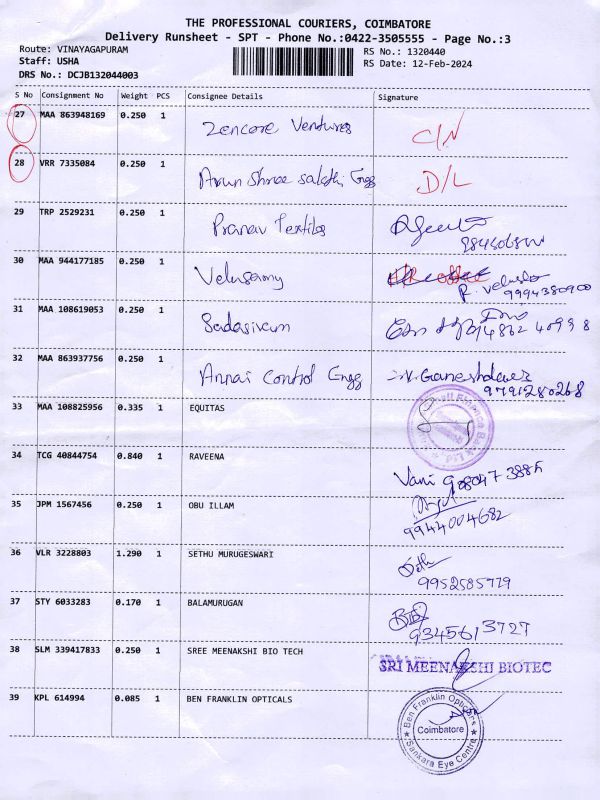 THE PROFESSIONAL COURIERS, COIMBATORE
Delivery Runsheet - SPT - Phone No.:0422-3505555 - Page No.:3
Route: VINAYAGAPURAM
RS No.: 1320440
Staff: USHA
RS Date: 12-Feb-2024
DRS No.: DCJB132044003
S No Consignment No Weight PCS Consignee Details Signature
27 MAA 863948169 0.250 1 Zencore Ventures C/N
28 VRR 7335084 0.250 1 Arun Shree Sakthi Engg D/L
29 TRP 2529231 0.250 1 Pranav Textiles
30 MAA 944177185 0.250 1 Velusamy
9994380900
31 MAA 108619053 0.250 1 Sadasivam
32 MAA 863937756 0.250 1 Annai Control Engg
9791280268
33 MAA 108825956 0.335 1 EQUITAS
34 TCG 40844754 0.840 1 RAVEENA Vani
35 JPM 1567456 0.250 1 OBU ILLAM
9944004682
36 VLR 3228803 1.290 1 SETHU MURUGESWARI
9952585779
37 STY 6033283 0.170 1 BALAMURUGAN
9345613727
38 SLM 339417833 0.250 1 SREE MEENAKSHI BIO TECH SRI MEENAKSHI BIOTEC
39 KPL 614994 0.085 1 BEN FRANKLIN OPTICALS
Ben Franklin Opticians
Coimbatore
Sankara Eye Centre